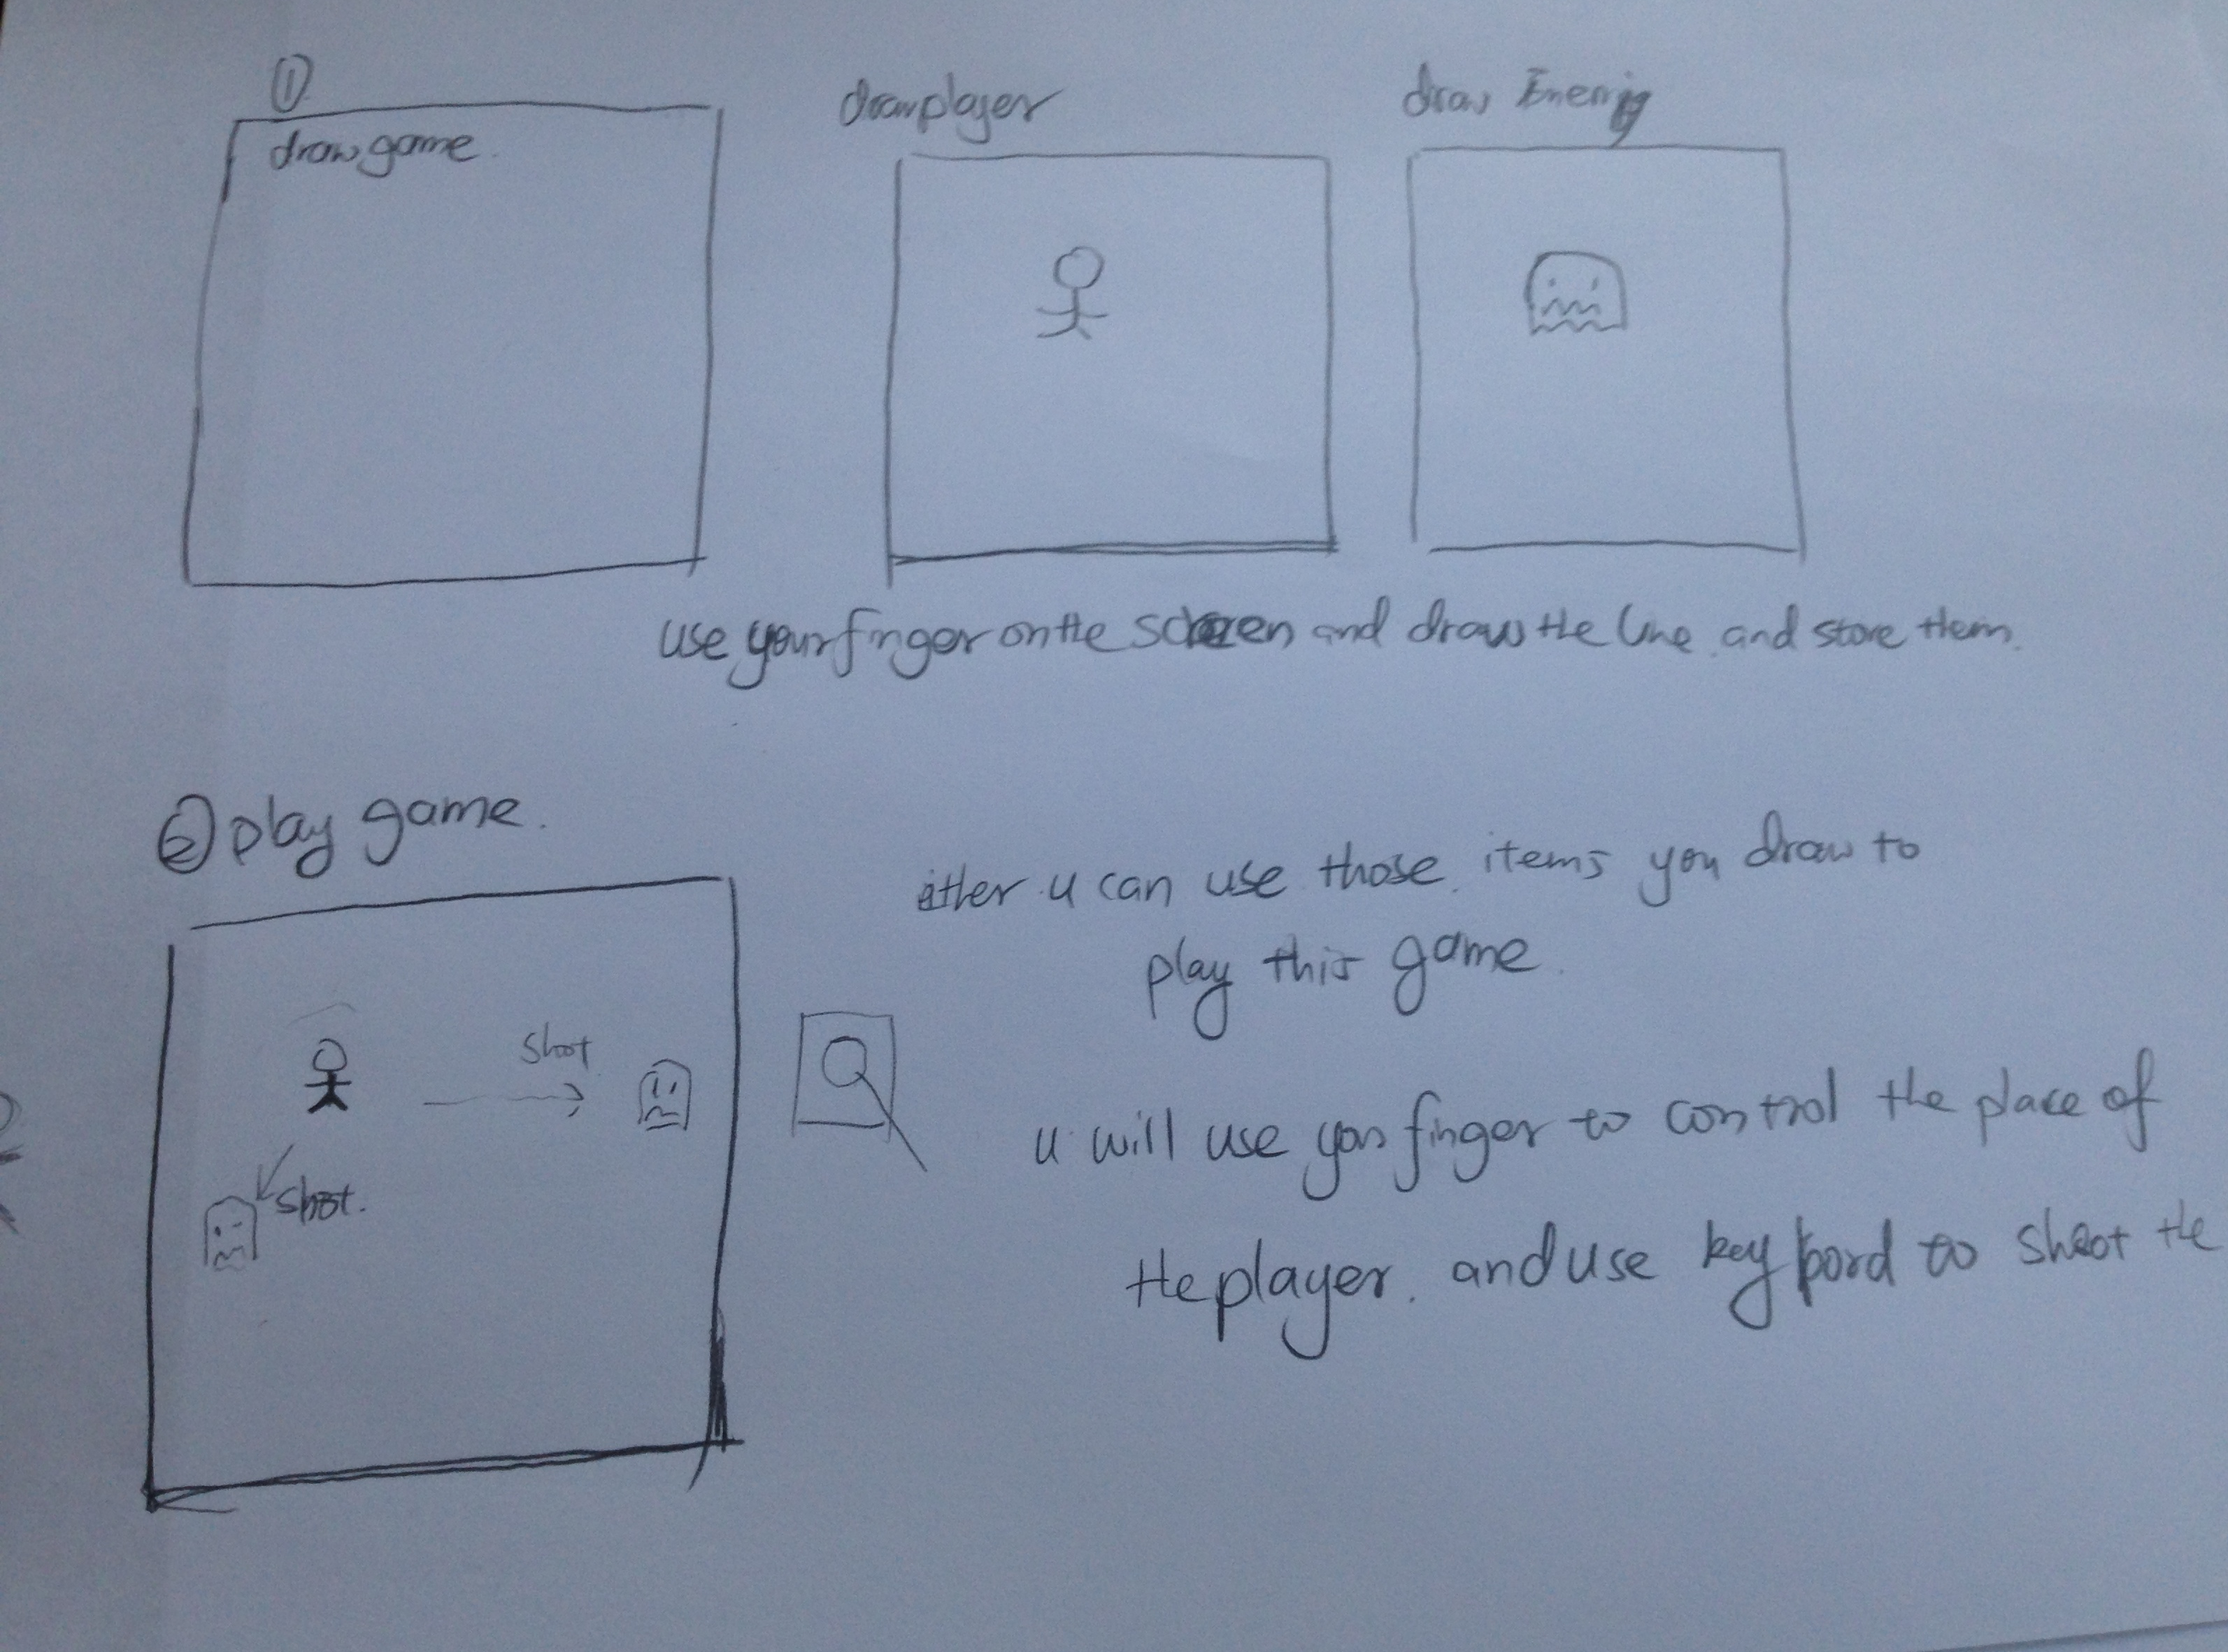 ①
draw game.
draw player
draw Enemy
use your finger on the screen and draw the line and store them.
② play game.
u can use those items you draw to
play this game.
shoot
shoot.
u will use your finger to control the place of
the player. and use key bord to shoot the